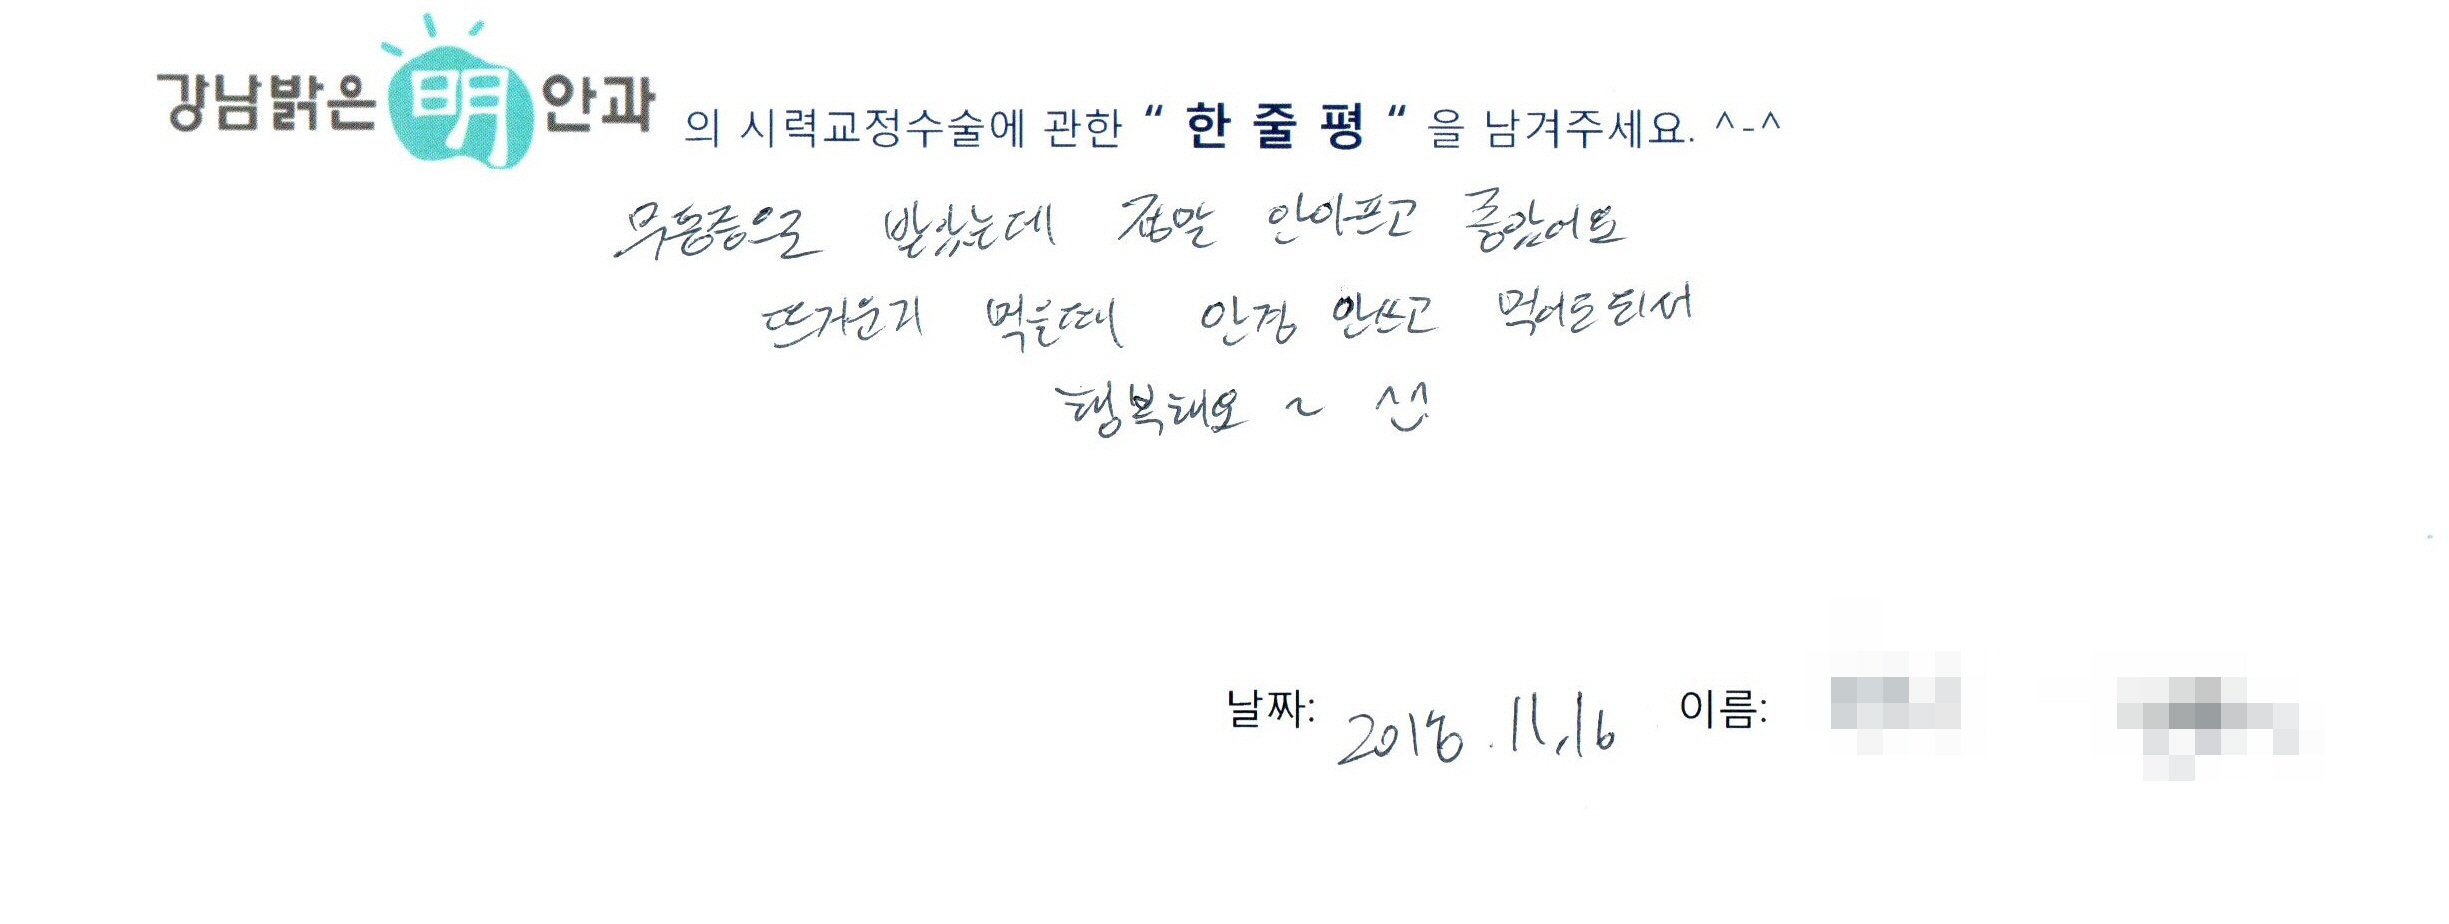 강남밝은 明 안과 의 시력교정수술에 관한 “ 한 줄 평 “ 을 남겨주세요. ^-^
무통증으로 받았는데 정말 안아프고 좋았어요
뜨거운거 먹을때 안경 안쓰고 먹어도되서
행복해요 ~ ^^
날짜: 2018.11.16 이름: